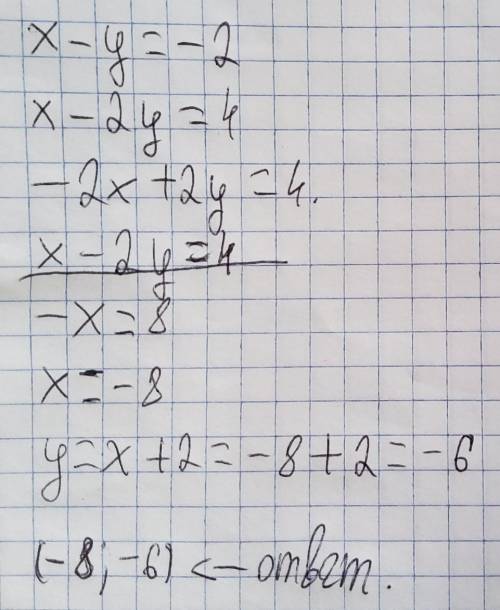 x - y = -2
x - 2y = 4
-2x + 2y = 4.
x - 2y = 4
-x = 8
x = -8
y = x + 2 = -8 + 2 = -6
(-8; -6) <— ответ.